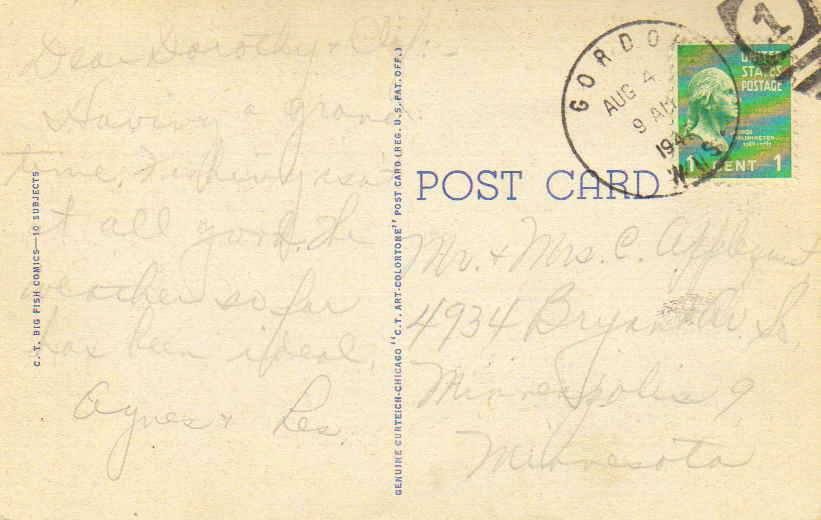 Dear Dorothy +
Having a grand
time. Fishing isn't
at all good. The
weather so far
has been ideal.
Agnes + Les.
C. T. BIG FISH COMICS—10 SUBJECTS
GENUINE CURTEICH-CHICAGO "C. T. ART-COLORTONE" POST CARD (REG. U.S. PAT. OFF.)
POST CARD
GORDON
AUG 4
9 AM
WIS.
1
UNITED
STATES
POSTAGE
GEORGE
WASHINGTON
1 CENT 1
Mr. + Mrs. C.
4934 Bryant Av So.
Minneapolis 9
Minnesota